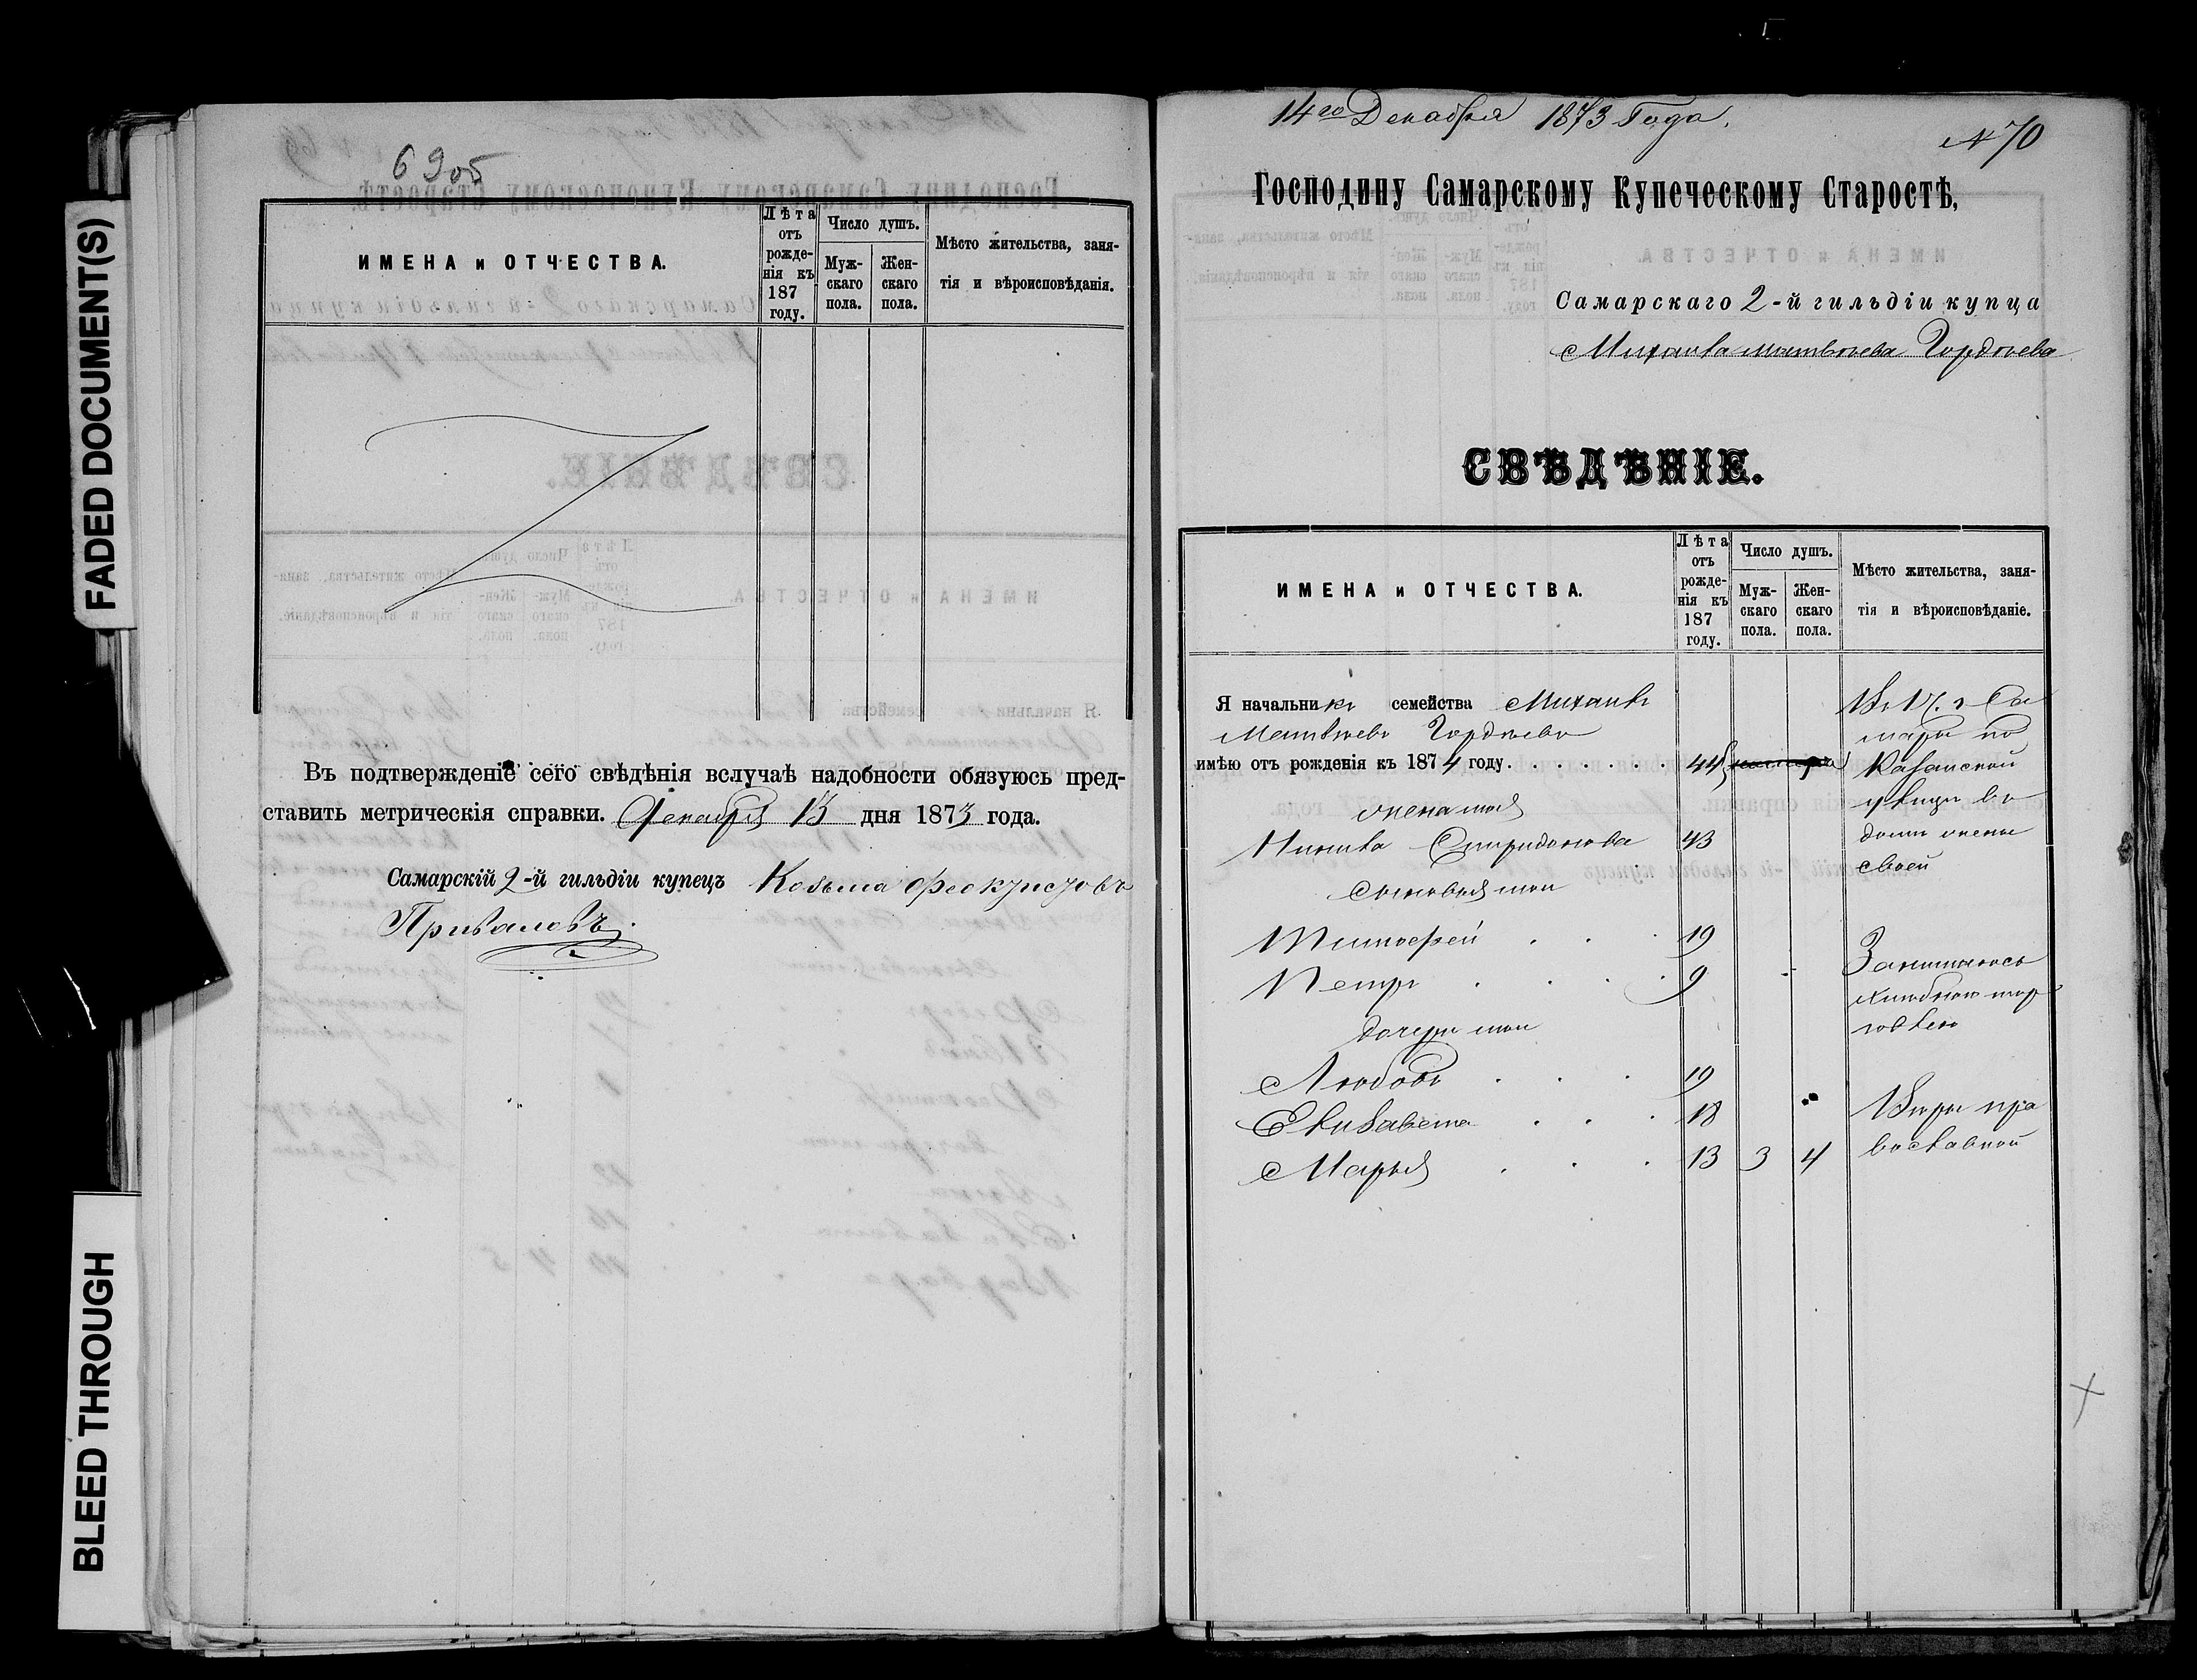 FADED DOCUMENT(S)
BLEED THROUGH
69об
ИМЕНА и ОТЧЕСТВА.
Лѣта отъ рожденія къ 187 году.
Число душъ.
Мужскаго пола.
Женскаго пола.
Мѣсто жительства, заня-
тія и вѣроисповѣданія.
Въ подтвержденіе сего свѣдѣнія вслучаѣ надобности обязуюсь пред-
ставить метрическія справки. Декабря 13 дня 1873 года.
Самарскій 2-й гильдіи купецъ Козьма Феоктистовъ
Приваловъ.
14го Декабря 1873 Года.
№ 70
Господину Самарскому Купеческому Старостѣ,
Самарскаго 2-й гильдіи купца
Михаила Матвѣева Гордѣева
СВѢДѢНІЕ.
ИМЕНА и ОТЧЕСТВА.
Лѣта отъ рожденія къ 187 году.
Число душъ.
Мужскаго пола.
Женскаго пола.
Мѣсто жительства, заня-
тія и вѣроисповѣданіе.
Я начальникъ семейства Михаилъ
Матвѣевъ Гордѣевъ
имѣю отъ рожденія къ 1874 году. . . . . . . . 44
жена моя
Спиридонова 43
сыновья мои
Тимофей . . . 19
Петръ . . . 9
дочери мои
Любовь . . . 19
Елизавета . . . 18
Марья . . . 13 3 4
Са
марѣ по
Казанской
улицѣ въ
домѣ жены
своей
Занимаюсь
хлѣбною тор
говлею
Вѣры пра
вославной